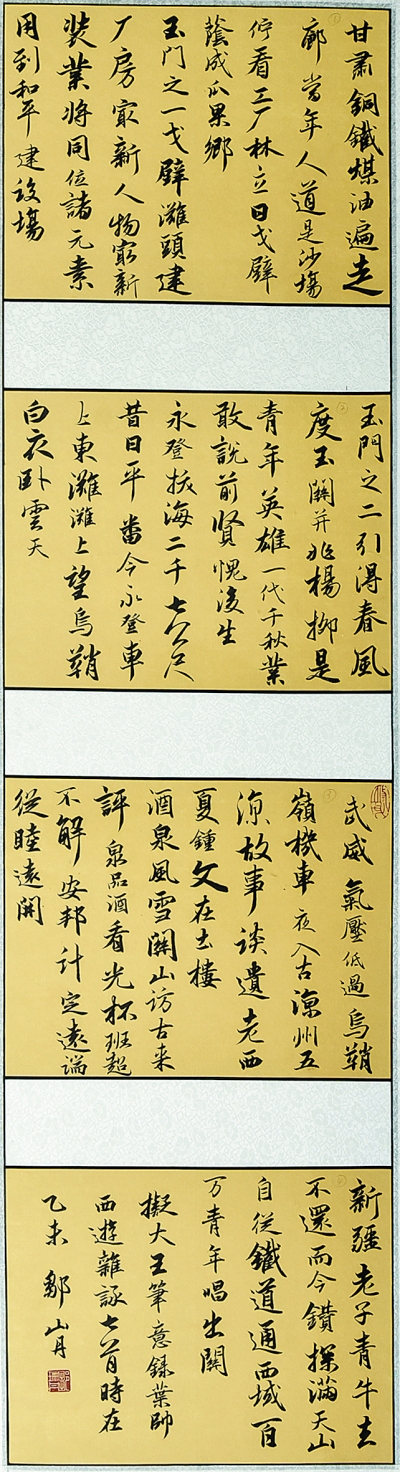 甘肅銅鐵煤油遍走
廊當年人道是沙場
停看工厂林立日戈壁
蔭成瓜果鄉
玉門之一戈壁灘頭建
厂房最新人物最新
裝業將同位諸元素
用到和平建設場
玉門之二引得春風
度玉關并非楊柳是
青年英雄一代千秋業
敢說前賢愧後生
永登拔海二千七公尺
昔日平番今永登車
上東灘灘上望烏鞘
白衣臥雲天
武威氣壓低過烏鞘
嶺機車夜入古凉州五
凉故事談遺老西
夏鍾文在土樓
酒泉風雪關山訪古来
評泉品酒看光杯班超
不解安邦計定遠端
從睦遠開
新疆老子青牛去
不還而今鑽探滿天山
自從鐵道通西域百
万青年唱出關
擬大王筆意錄葉帥
西遊雜詠七首時在
乙未鄒山月